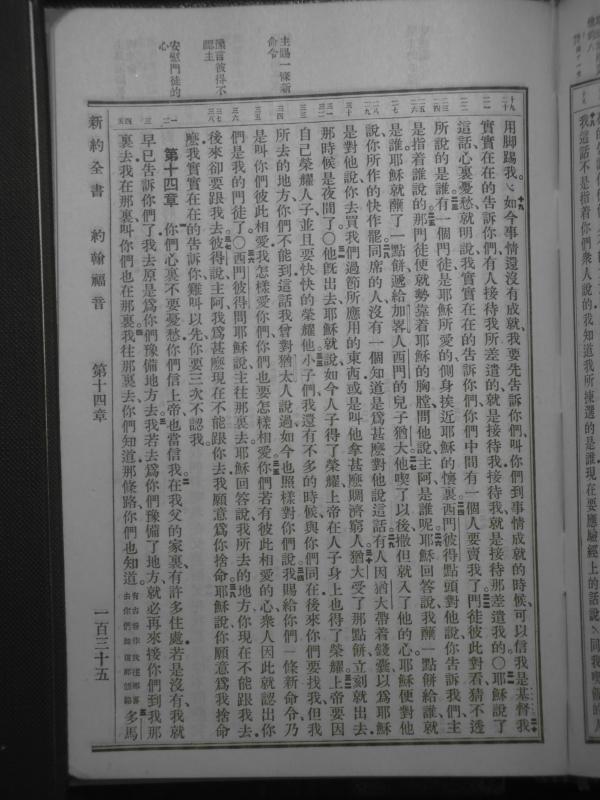 主賜一條新
命令
預言彼得不
認主
安慰門徒的
心
用脚踢我如今事情還沒有成就我要先告訴你們叫你們到事情成就的時候可以信我是基督我
實實在在的告訴你們有人接待我所差遣的就是接待我接待我就是接待那差遣我的〇耶穌說了
這話心裏憂愁就明說我實實在在的告訴你們你們中間有一個人要賣我了門徒彼此對看猜不透
所說的是誰有一個門徒是耶穌所愛的側身挨近耶穌的懷裏西門彼得點頭對他說你告訴我們主
是指着誰說的那門徒便就勢靠着耶穌的胸膛問他說主阿是誰呢耶穌回答說我蘸一點餅給誰就
是誰耶穌就蘸了一點餅遞給加畧人西門的兒子猶大他喫了以後撒但就入了他的心耶穌便對他
說你所作的快作罷同席的人沒有一個知道是爲甚麽對他說這話有人因猶大帶着錢囊以爲耶穌
是對他說你去買我們過節所應用的東西或是叫他拿甚麽賙濟窮人猶大受了那點餅立刻就出去
那時候是夜間了〇他旣出去耶穌就說如今人子得了榮耀上帝在人子身上也得了榮耀上帝要因
自己榮耀人子並且要快快的榮耀他小子們我還有不多的時候與你們同在後來你們要找我但我
所去的地方你們不能到這話我曾對猶太人說過如今也照樣對你們說我賜給你們一條新命令乃
是叫你們彼此相愛我怎樣愛你們你們也要怎樣相愛你們若有彼此相愛的心衆人因此就認出你
們是我的門徒了〇西門彼得問耶穌說主往那裏去耶穌回答說我所去的地方你現在不能跟我去
後來卻要跟我去彼得說主阿我爲甚麽現在不能跟你去我願意爲你捨命耶穌說你願意爲我捨命
麽我實實在在的告訴你雞叫以先你要三次不認我
第十四章 你們心裏不要憂愁你們信上帝也當信我在我父的家裏有許多住處若是沒有我就
早已告訴你們了我去原是爲你們豫備地方去我若去爲你們豫備了地方就必再來接你們到我那
裏去我在那裏叫你們也在那裏我往那裏去你們知道那條路你們也知道 多馬
新約全書 約翰福音 第十四章 一百三十五
我這話不是指着你們衆人說的我知道我所揀選的是誰現在要應驗經上的話說同我喫飯的人